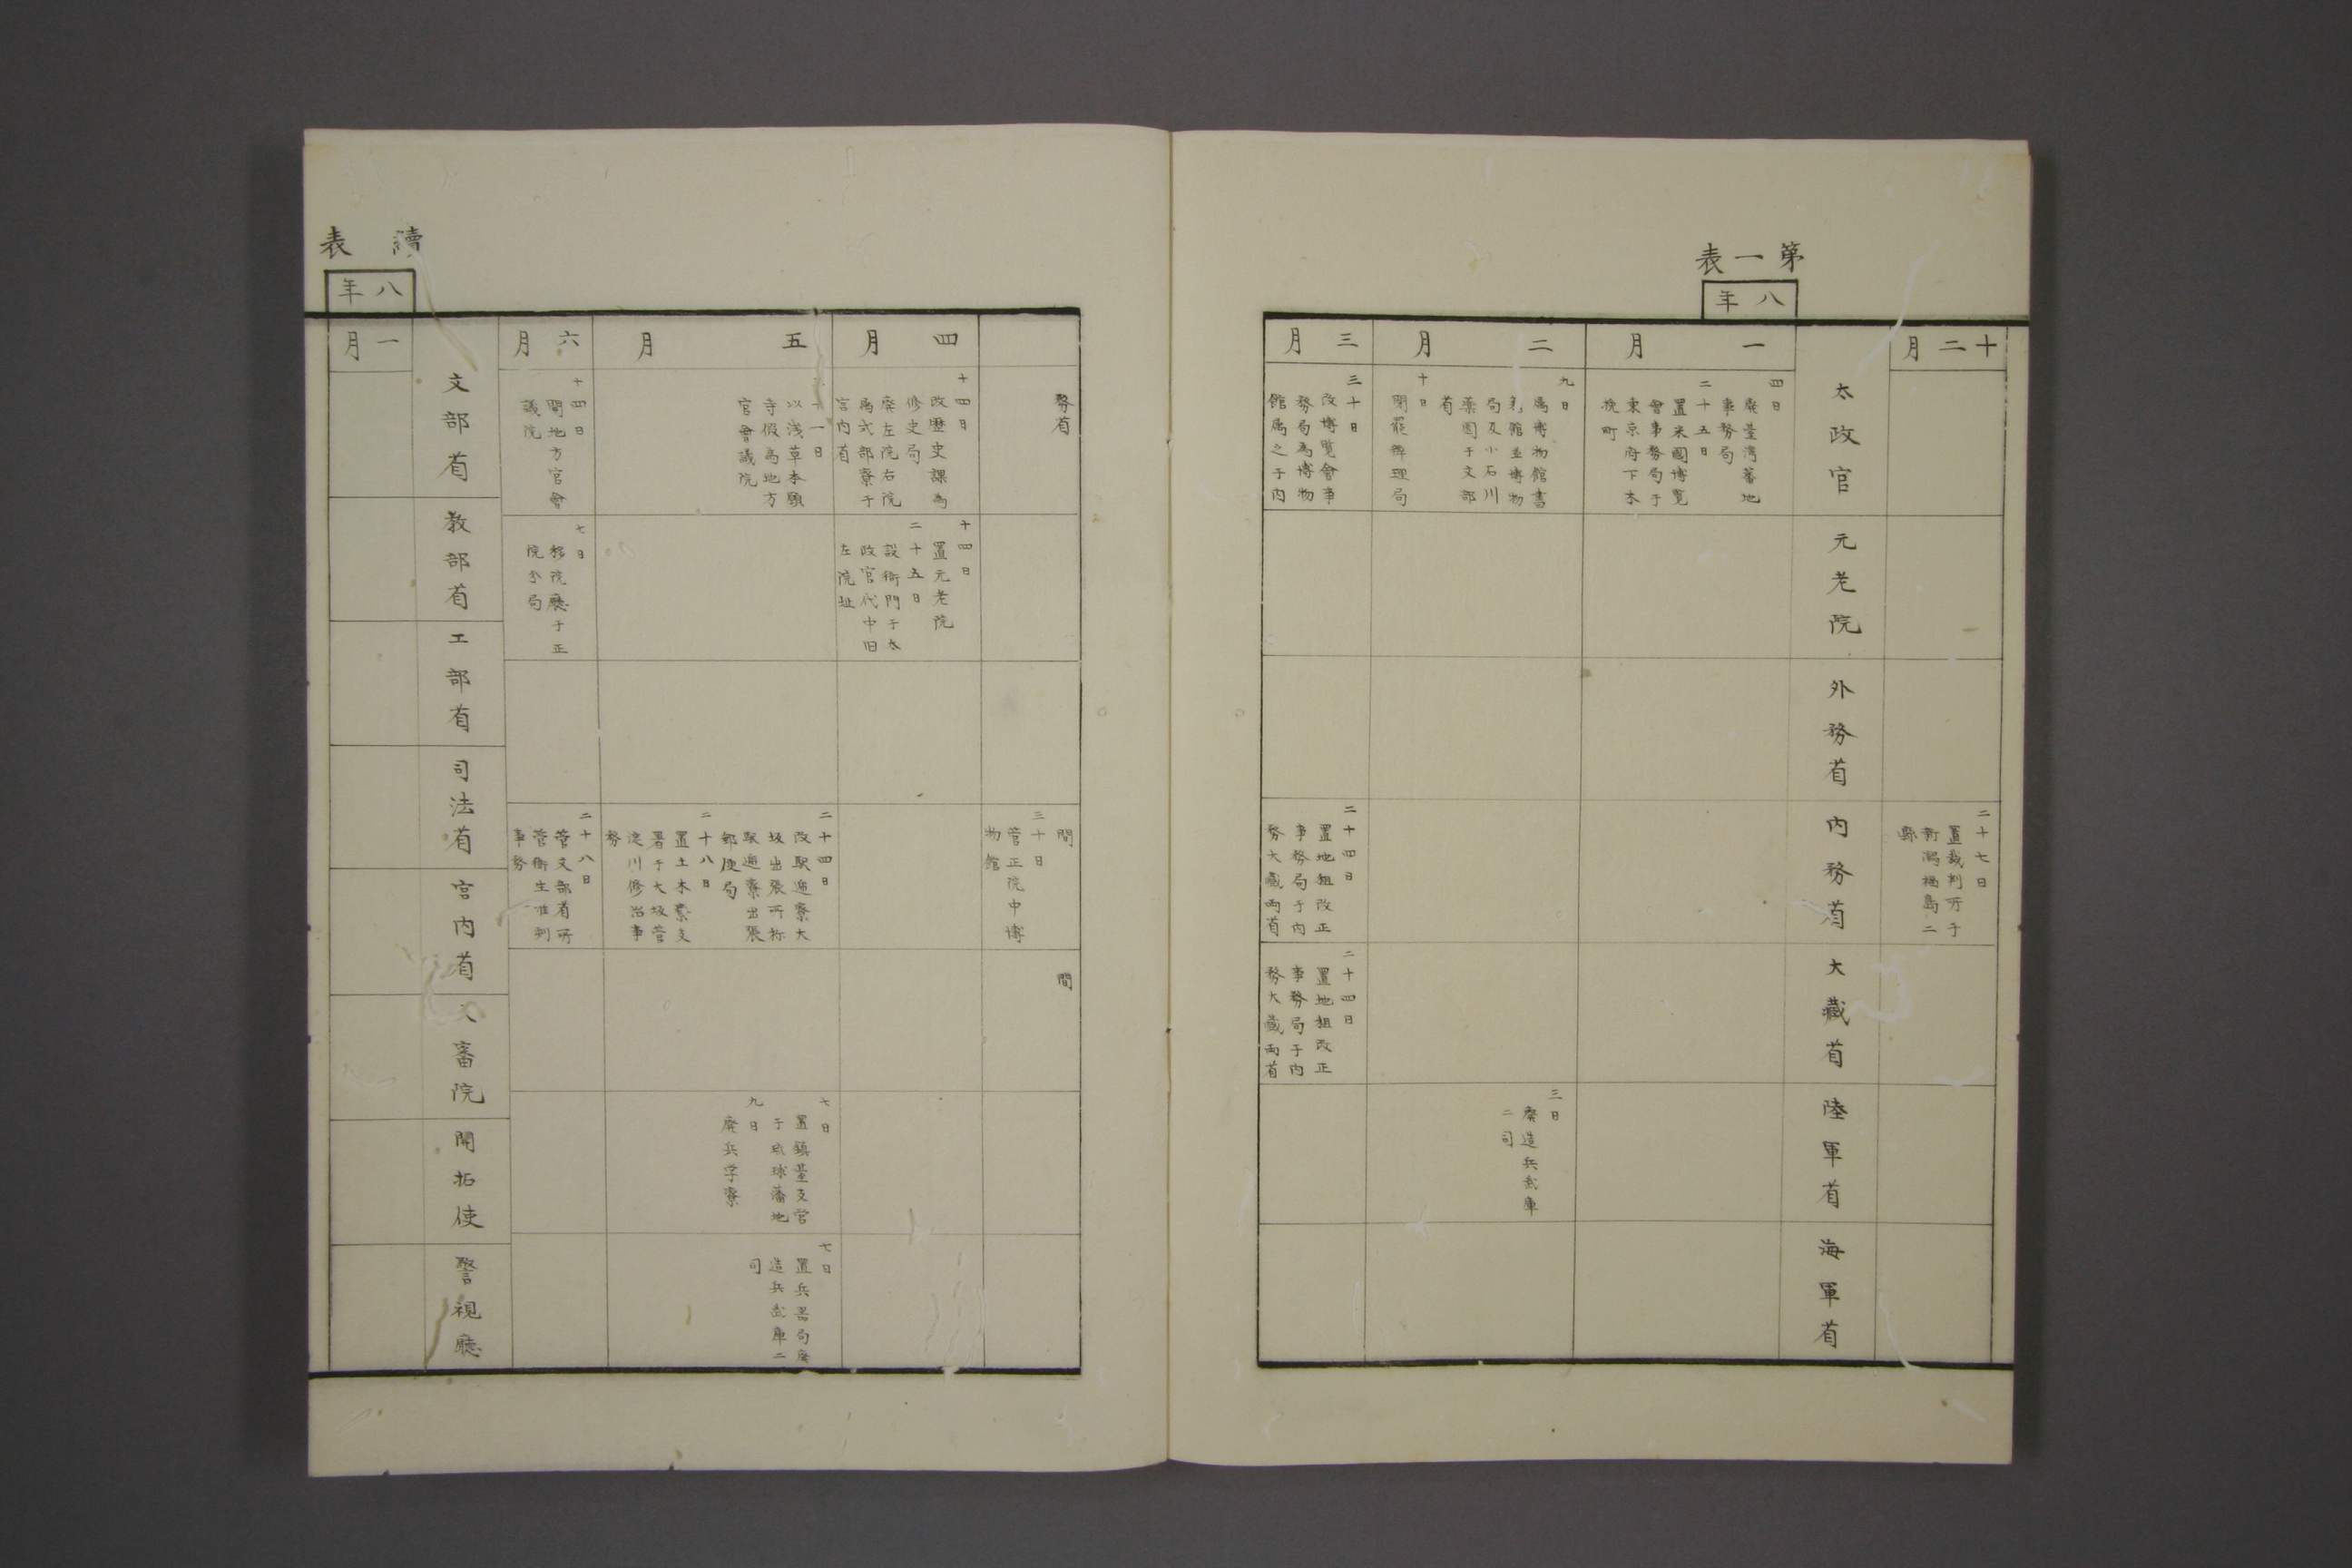 第一表
八年
十二月
二十七日
置裁判所于
新潟福島二
縣
太政官
元老院
外務省
内務省
大藏省
陸軍省
海軍省
一月
四日
廃臺湾蕃地
事務局
二十五日
置米國博覧
會事務局于
東京府下木
挽町
二月
九日
属博物館書
籍館並博物
局及小石川
薬園于文部
省
十日
理局
三日
廃造兵武庫
二司
三月
三十日
改博覧會事
務局為博物
館属之于内
二十四日
置地租改正
事務局于内
務大藏両省
二十四日
置地租改正
事務局于内
務大藏両省
務省
間
三十日
管正院中博
物館
間
四月
十四日
改歴史課為
修史局
廃左院右院
属式部寮于
宮内省
十四日
置元老院
二十五日
設衙門于太
政官代中旧
左院址
五月
一日
以浅草本願
寺假為地方
官會議院
二十四日
改駅逓寮大
坂出張所称
駅逓寮出張
郵便局
二十八日
置土木寮支
署于大坂管
淀川修治事
務
七日
置鎮臺支営
于琉球藩地
九日
廃兵学寮
七日
置兵器局廃
造兵武庫二
司
六月
十四日
開地方官會
議院
七日
移院廳于正
院本局
二十八日
管文部省所
管衛生准刻
事務
續表
八年
文部省
教部省
工部省
司法省
宮内省
大審院
開拓使
警視廳
一月